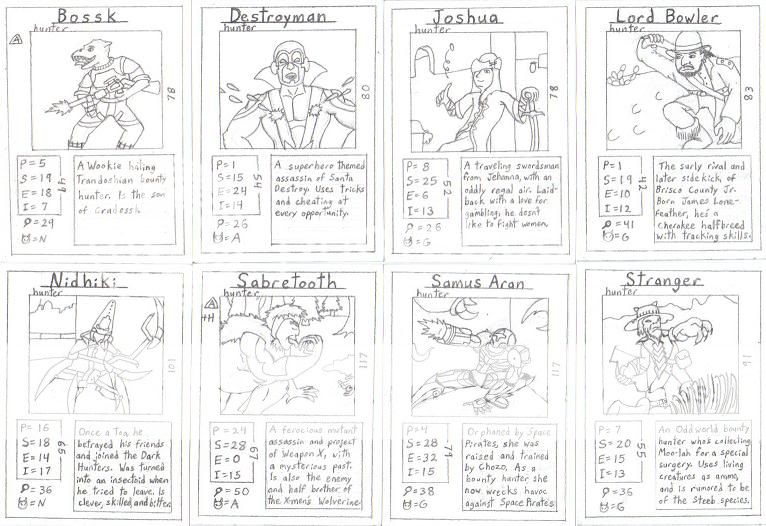 Bossk
hunter
A
78
P=5
S=19
E=18
I=7
49
=24
=N
A Wookie hating
Trandoshian bounty
hunter. Is the son
of Cradossk
Destroyman
hunter
80
P=1
S=15
E=24
I=14
54
=26
=A
A superhero themed
assassin of Santa
Destroy. Uses tricks
and cheating at
every opportunity.
Joshua
hunter
78
P=8
S=25
E=6
I=13
52
=26
=G
A traveling swordsman
from Jehanna, with an
oddly regal air. Laid-
back with a love for
gambling, he dosnt
like to fight women.
Lord Bowler
hunter
83
P=1
S=19
E=10
I=12
42
=41
=G
The surly rival and
later sidekick of
Brisco County Jr.
Born James Lone-
feather, he's a
cherakee halfbreed
with tracking skills.
Nidhiki
hunter
101
P=16
S=18
E=14
I=17
65
=36
=N
Once a Toa, he
betrayed his friends
and joined the Dark
Hunters. Was turned
into an insectoid when
he tried to leave. Is
clever, skilled, and bitter.
Sabretooth
hunter
A
HH
117
P=24
S=28
E=0
I=15
67
=50
=A
A ferocious mutant
assassin and project
of Weapon X, with
a mysterious past.
Is also the enemy
and half brother of
the X-men's Wolverine
Samus Aran
hunter
117
P=4
S=28
E=32
I=15
79
=38
=G
Orphaned by Space
Pirates, she was
raised and trained
by Chozo. As a
bounty hunter she
now wrecks havoc
against Space Pirates
Stranger
hunter
91
P=7
S=20
E=15
I=13
55
=36
=G
An Oddworld bounty
hunter who's collecting
Moolah for a special
surgery. Uses living
creatures as ammo,
and is rumored to be
of the Steeb species.